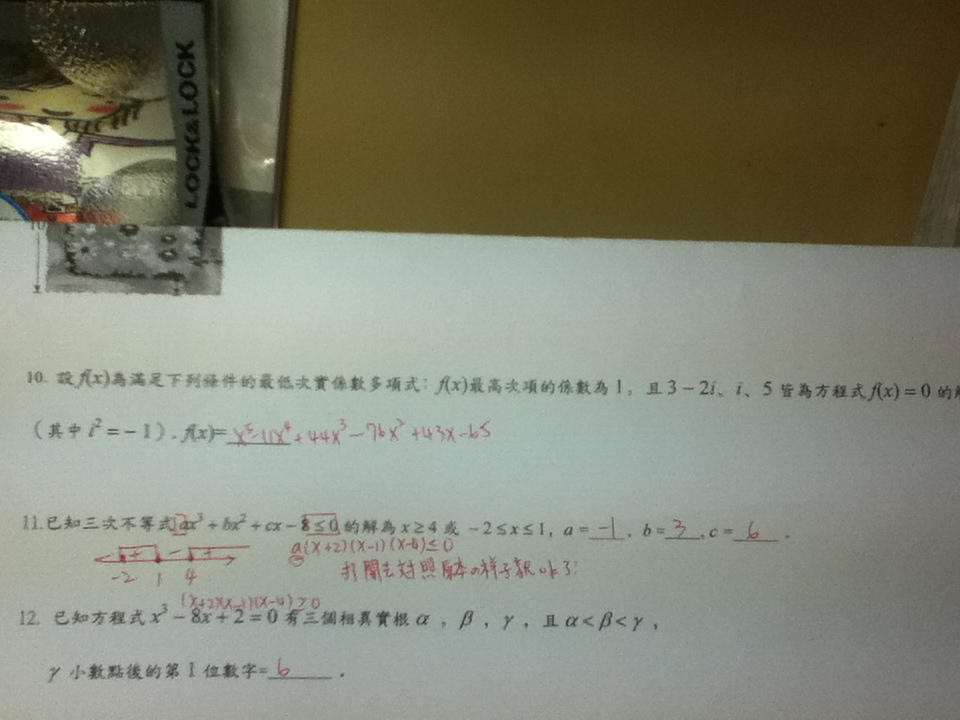 LOCK&LOCK
10. 設f(x)為滿足下列條件的最低次實係數多項式：f(x)最高次項的係數為1，且3-2i、i、5皆為方程式f(x)=0的
（其中i²=-1）. f(x)=x⁵-11x⁴+44x³-76x²+43x-65
11.已知三次不等式ax³+bx²+cx-8≤0的解為x≥4或-2≤x≤1, a=-1, b=3, c=6.
+ - +
-2 1 4
a(x+2)(x-1)(x-4)≤0
打開去對照原本の樣子就ok了!
(x+2)(x-1)(x-4)≥0
12. 已知方程式x³-8x+2=0有三個相異實根α, β, γ, 且α<β<γ,
γ小數點後的第1位數字=6.